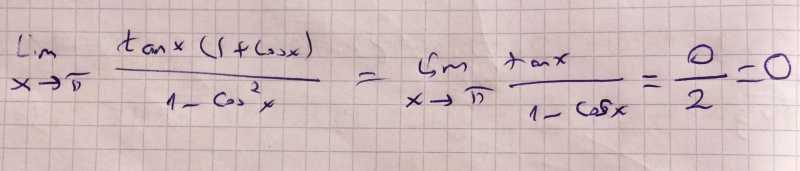 lim x→π tan x (1 + cos x) / 1 - cos² x = lim x→π tan x / 1 - cos x = 0 / 2 = 0